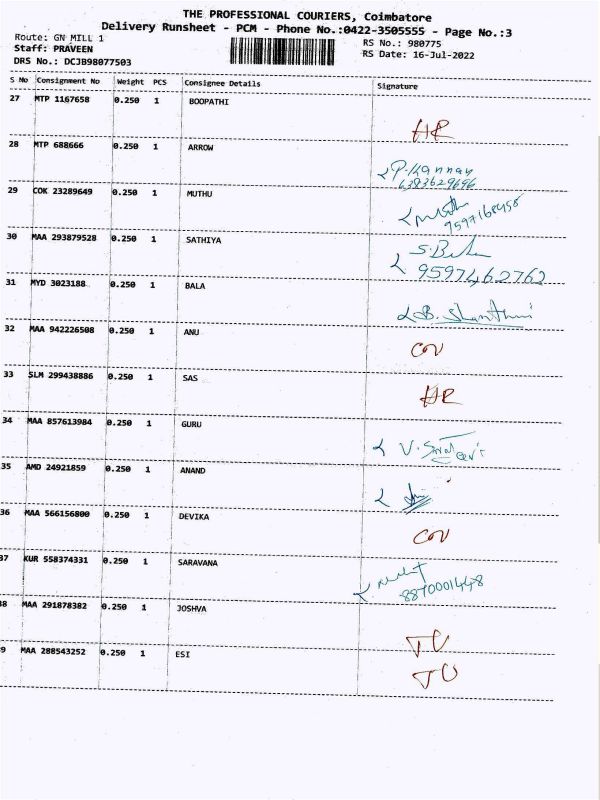 THE PROFESSIONAL COURIERS, Coimbatore
Delivery Runsheet - PCM - Phone No.:0422-3505555 - Page No.:3
Route: GN MILL 1
RS No.: 980775
Staff: PRAVEEN
RS Date: 16-Jul-2022
DRS No.: DCJB98077503
S No Consignment No Weight PCS Consignee Details Signature
27 MTP 1167658 0.250 1 BOOPATHI
HR
28 MTP 688666 0.250 1 ARROW
P. Kannan
6383629696
29 COK 23289649 0.250 1 MUTHU
9597168458
30 MAA 293879528 0.250 1 SATHIYA
9597462762
31 MYD 3023188 0.250 1 BALA
B. Shanthini
32 MAA 942226508 0.250 1 ANU
COV
33 SLM 299438886 0.250 1 SAS
HR
34 MAA 857613984 0.250 1 GURU
35 AMD 24921859 0.250 1 ANAND
36 MAA 566156800 0.250 1 DEVIKA
COV
37 KUR 558374331 0.250 1 SARAVANA
8870001448
38 MAA 291878382 0.250 1 JOSHVA
TU
39 MAA 288543252 0.250 1 ESI
TU